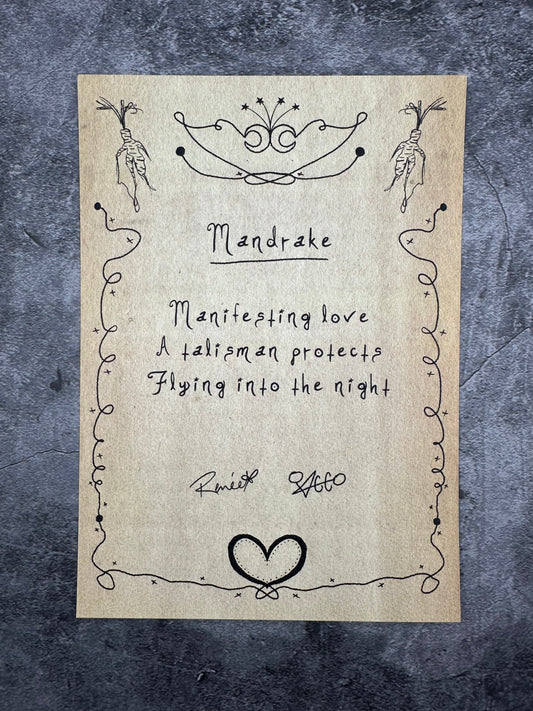 Mandrake
Manifesting love
A talisman protects
Flying into the night
Renée